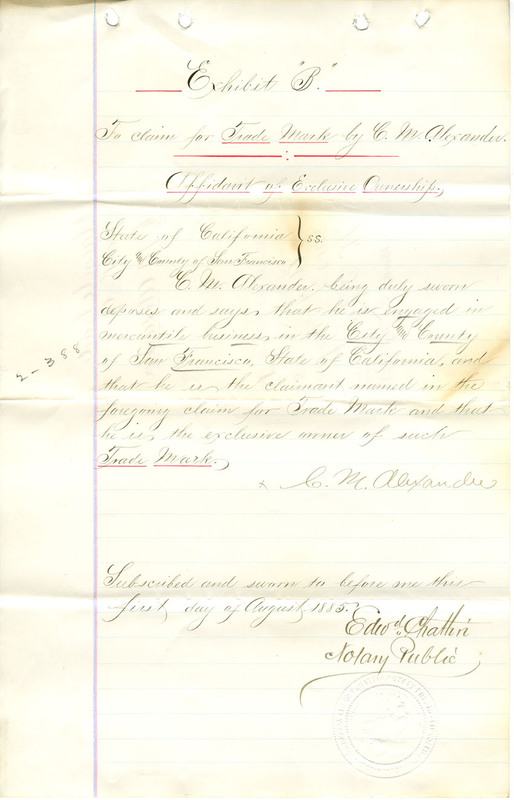 Exhibit "B"
To claim for Trade Mark by C. M. Alexander.
:
Affidavit of Exclusive Ownership,
State of California } ss.
City and County of San Francisco
C. M. Alexander, being duly sworn
deposes and says, that he is engaged in
mercantile business, in the City and County
of San Francisco, State of California, and
that he is the claimant named in the
foregoing claim for Trade Mark and that
he is, the exclusive owner of such
Trade Mark,
2-388
x C. M. Alexander
Subscribed and sworn to before me this
first day of August, 1885.
Edwd.
Notary Public